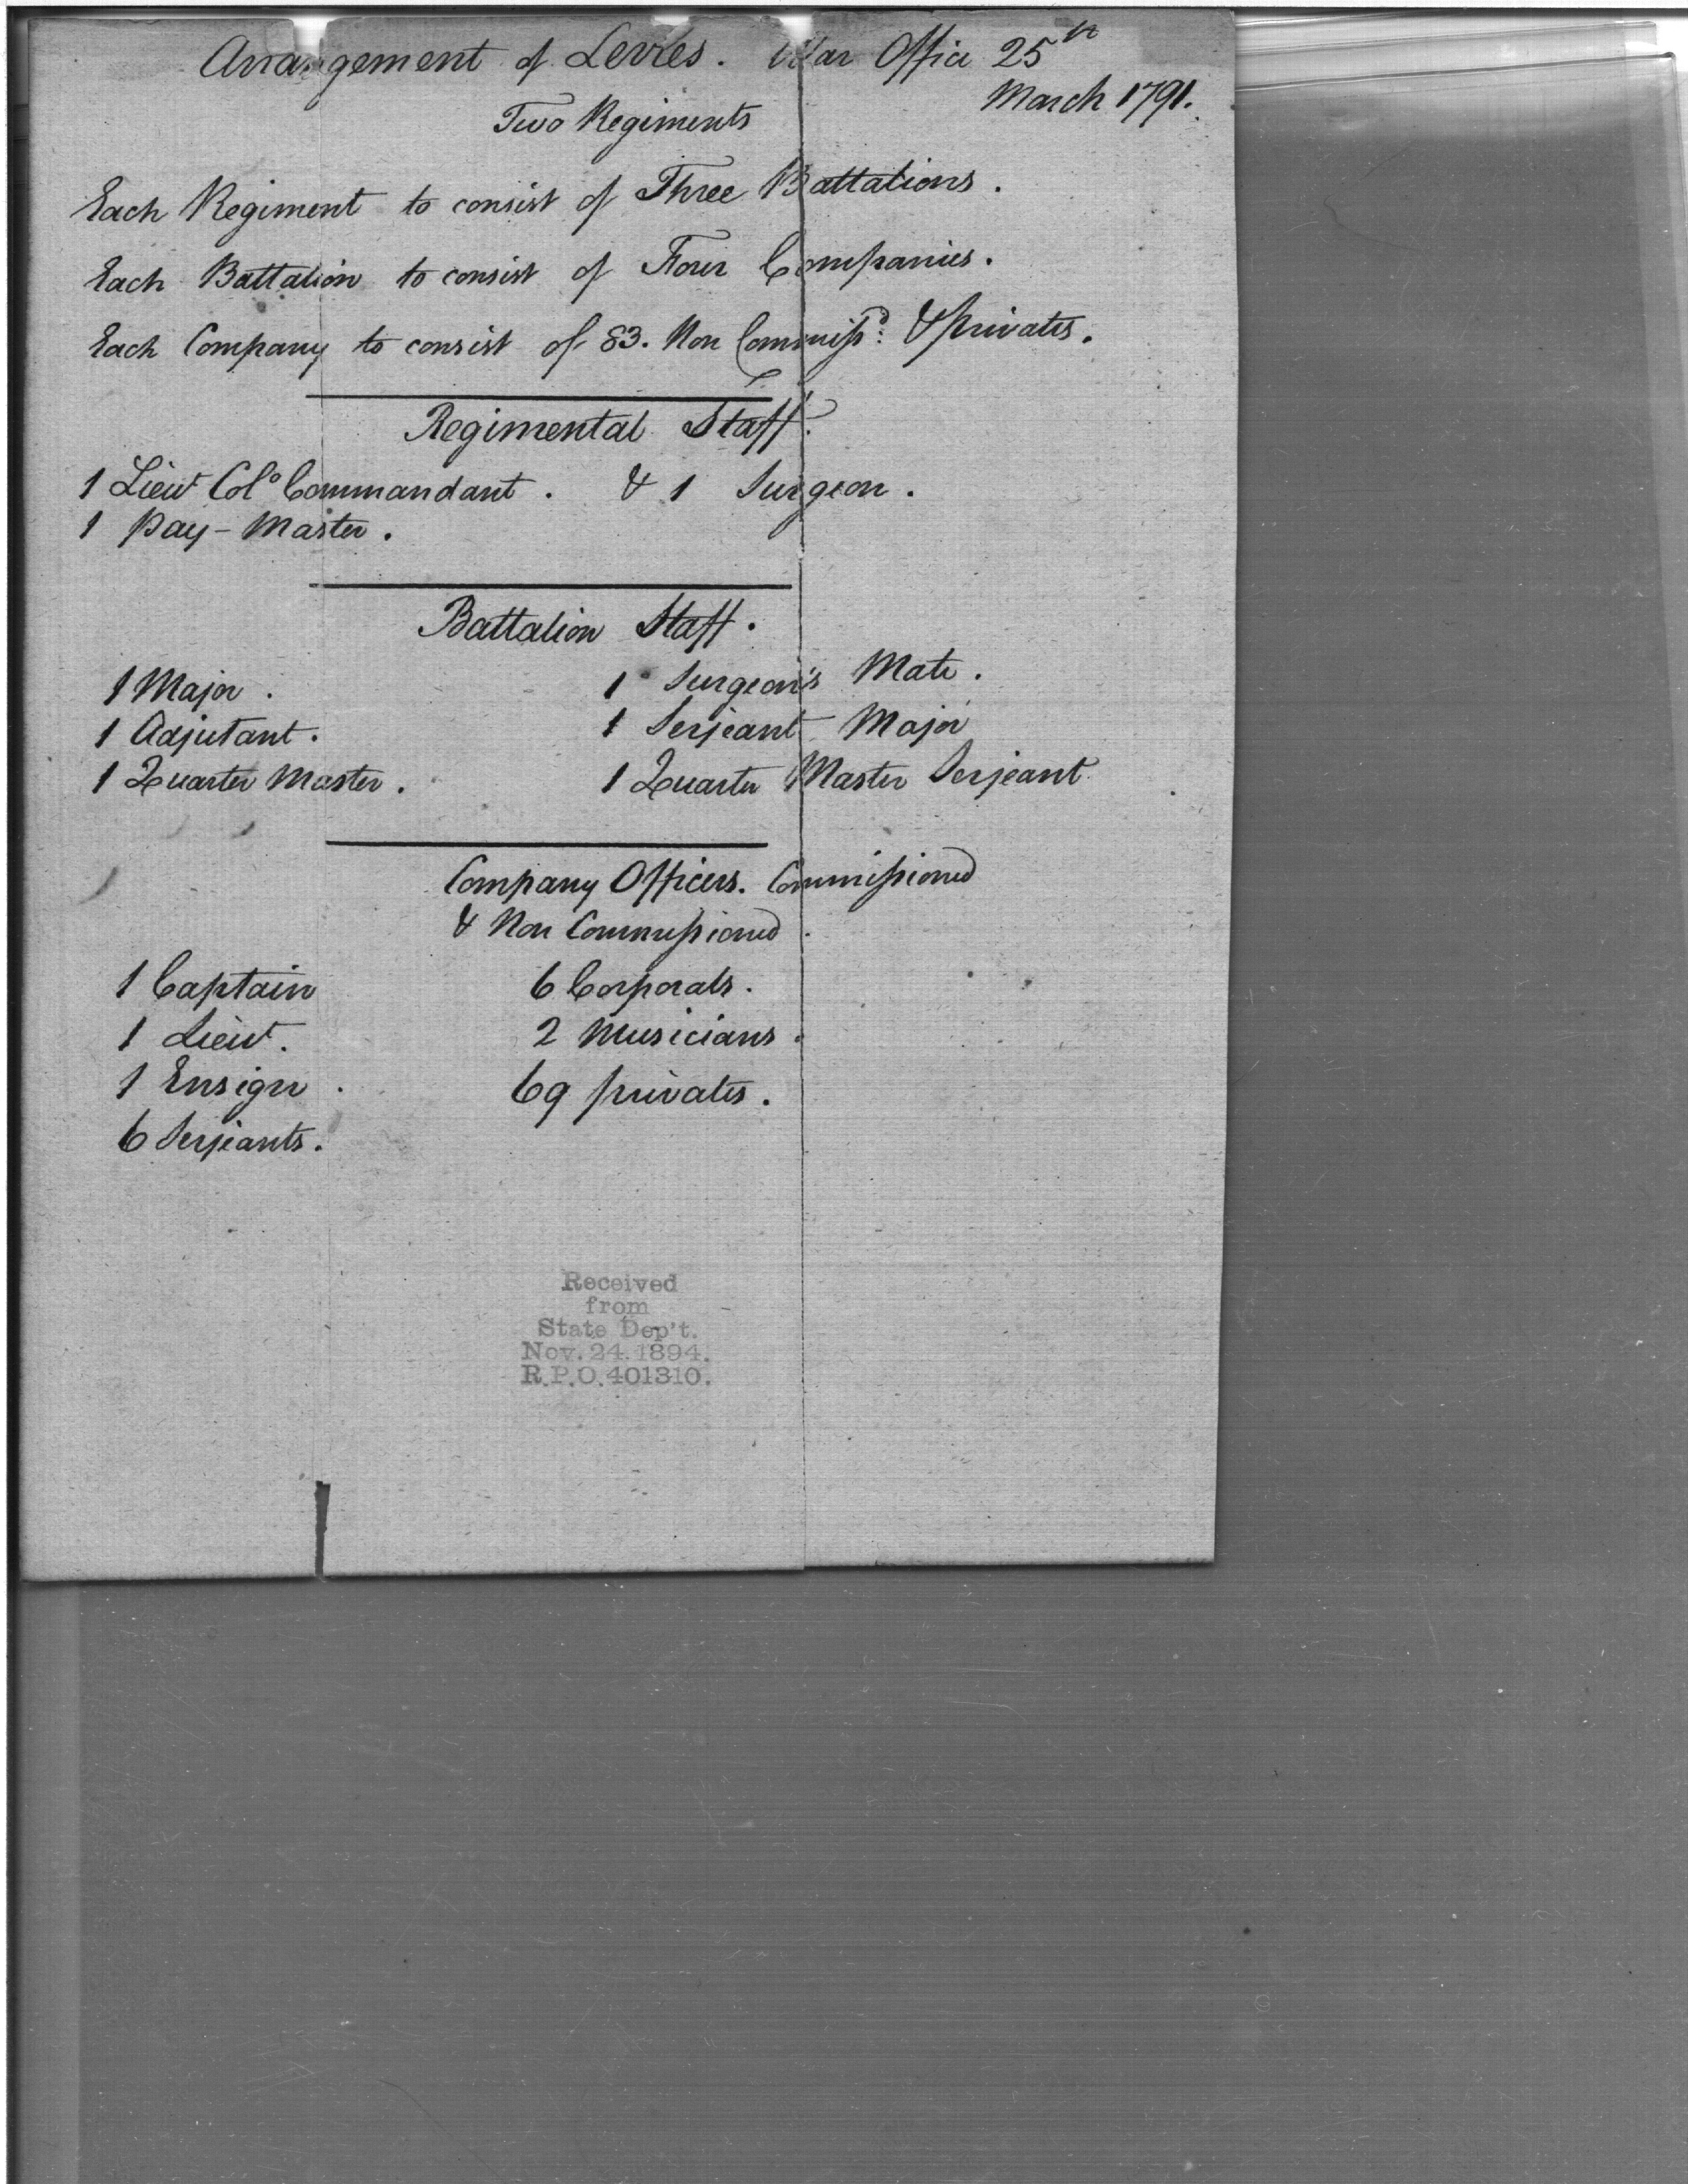 Arrangement of Levies. War Office 25th
March 1791.
Two Regiments
Each Regiment to consist of Three Battalions.
Each Battalion to consist of Four Companies.
Each Company to consist of 83. Non Commissd: & privates.
Regimental Staff.
1 Lieut Colo Commandant. & 1 Surgeon.
1 Pay-Master.
Battalion Staff.
1 Major. 1 Surgeon's Mate.
1 Adjutant. 1 Serjeant Major
1 Quarter Master. 1 Quarter Master Serjeant
Company Officers. Commissioned
& Non Commissioned.
1 Captain 6 Corporals.
1 Lieut. 2 Musicians.
1 Ensign. 69 privates.
6 Serjeants.
Received
from
State Dep't.
Nov. 24. 1894.
R.P.O. 401310.